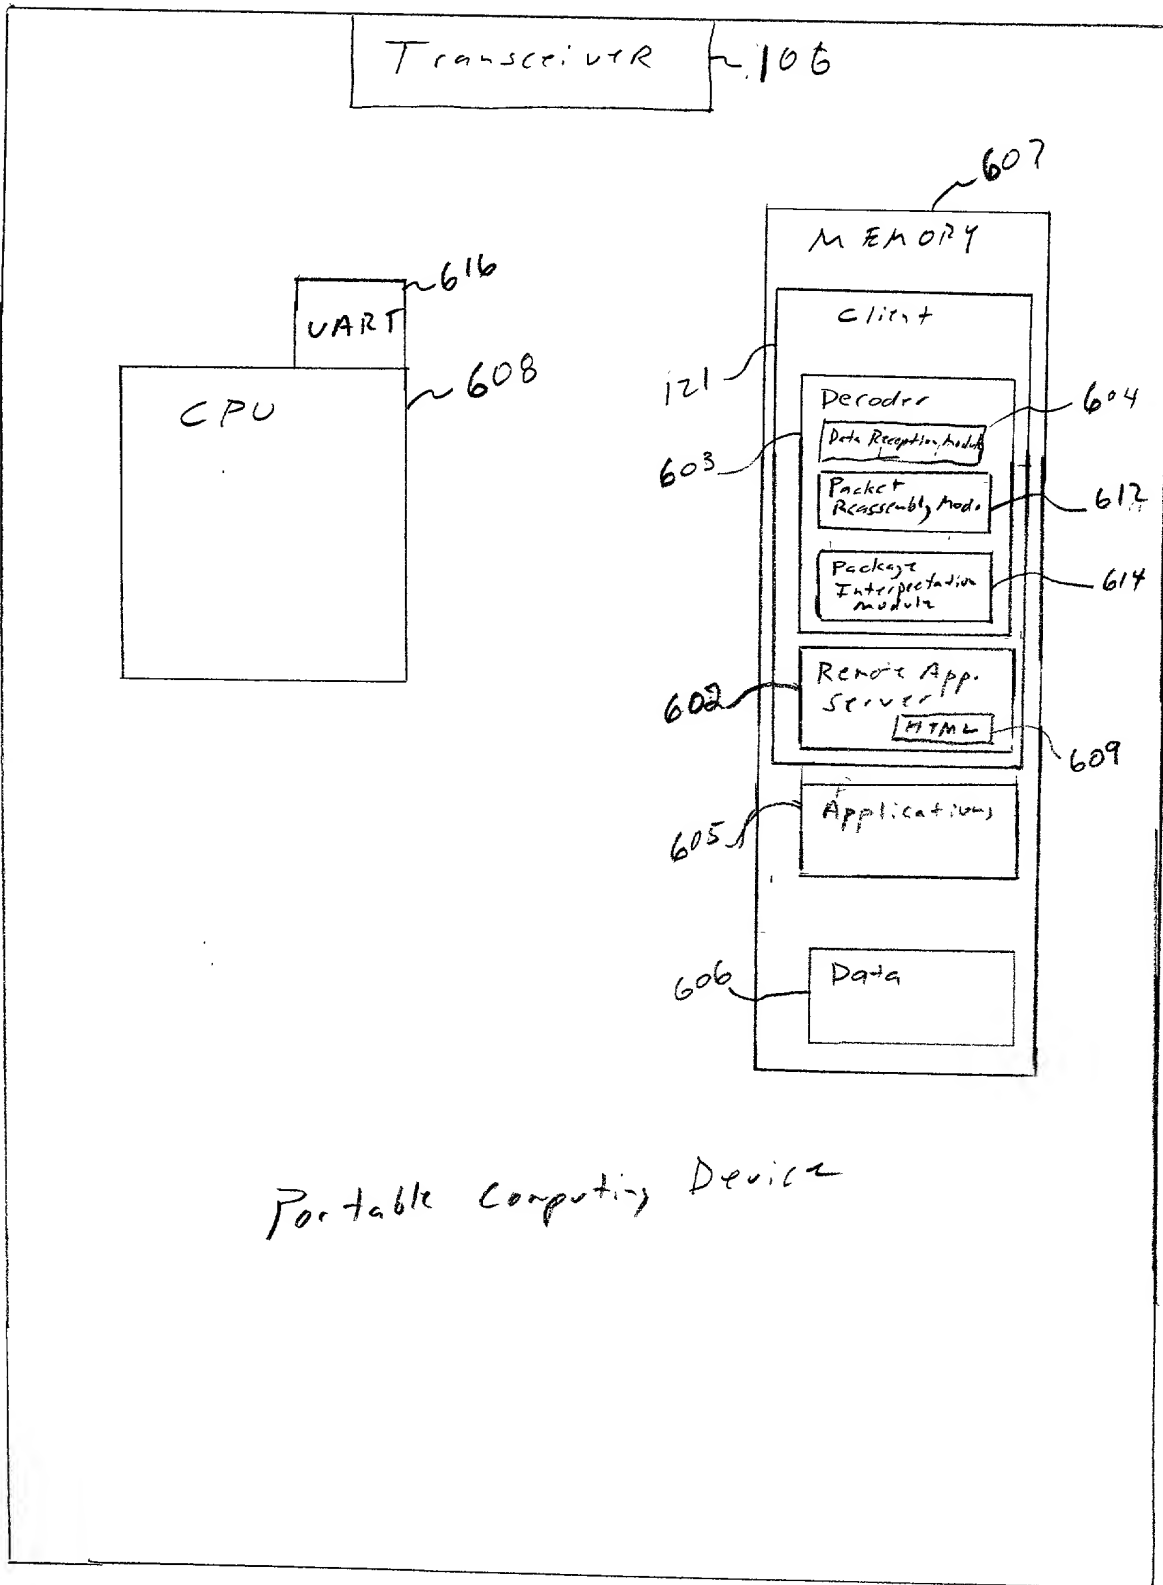 Transceiver 106
607
MEMORY
616
UART
Client
608
CPU
121
Decoder
604
Data Reception Module
603
Packet
Reassembly Mod.
612
Package
Interpretation
Module
614
Remote App.
Server
602
HTML
609
Applications
605
Data
606
Portable Computing Device